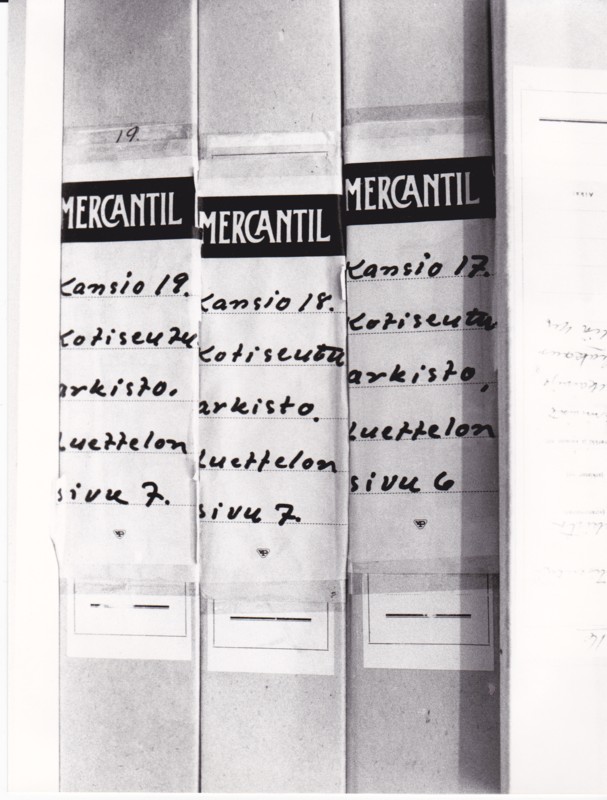 19.
MERCANTIL
Kansio 19.
Kotiseutu
arkisto.
Luettelon
sivu 7.
MERCANTIL
Kansio 18.
Kotiseutu
arkisto.
Luettelon
sivu 7.
MERCANTIL
Kansio 17.
Kotiseutu
arkisto.
Luettelon
sivu 6